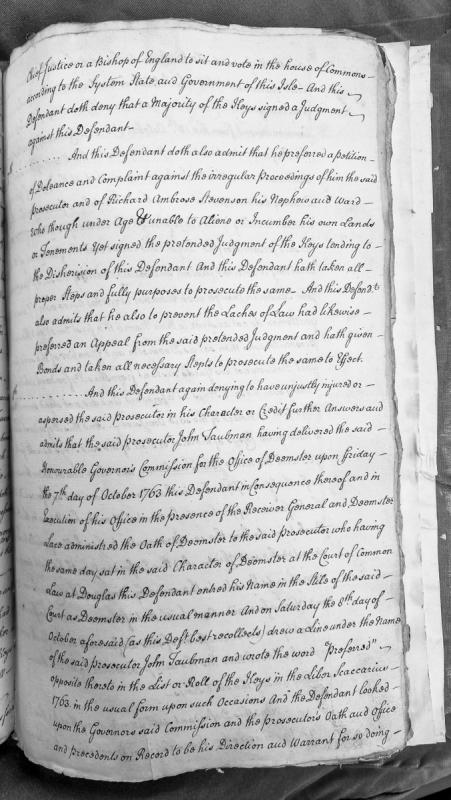 Chief Justice or a Bishop of England to sit and vote in the house of Commons -
according to the System State and Government of this Isle - And this
Defendant doth deny that a Majority of the Keys signed a Judgment
against this Defendant -
......... And this Defendant doth also admit that he preferred a petition -
of Doleance and Complaint against the irregular Proceedings of him the said
prosecutor and of Richard Ambrose Stevenson his Nephew and Ward -
who though under Age & unable to Aliene or Incumber his own Lands
or Tenements Yet signed the pretended Judgment of the Keys tending to -
the Disherision of this Defendant And this Defendant hath taken all -
proper Steps and fully purposes to prosecute the same - And this Defend.t
also admits that he also to prevent the Laches of Law had likewise -
preferred an Appeal from the said pretended Judgment and hath given -
Bonds and taken all necessary Stepts to prosecute the same to Effect.
......... And this Defendant again denying to have unjustly injured or -
aspersed the said prosecutor in his Character or Credit further Answers and
admits that the said prosecutor John Taubman having delivered the said -
Honourable Governors Commission for the Office of Deemster upon Friday -
the 7th day of October 1763 this Defendant in Consequence thereof and in
Execution of his Office in the presence of the Receiver General and Deemster
Lace administred the Oath of Deemster to the said prosecutor who having
the same day sat in the said Character of Deemster at the Court of Common
Law at Douglas this Defendant entred his Name in the Stile of the said -
Court as Deemster in the usual manner And on Saturday the 8th day of
October aforesaid (as this Deft best recollects) drew a Line under the Name
of the said Prosecutor John Taubman and wrote the word "Preferred"
opposite thereto in the List or Roll of the Keys in the Libor Scaccarius -
1763 in the usual form upon such Occasions And the Defendant looked -
upon the Governors said Commission and the prosecutors Oath and Office
and precedents on Record to be his Direction and Warrant for so doing -